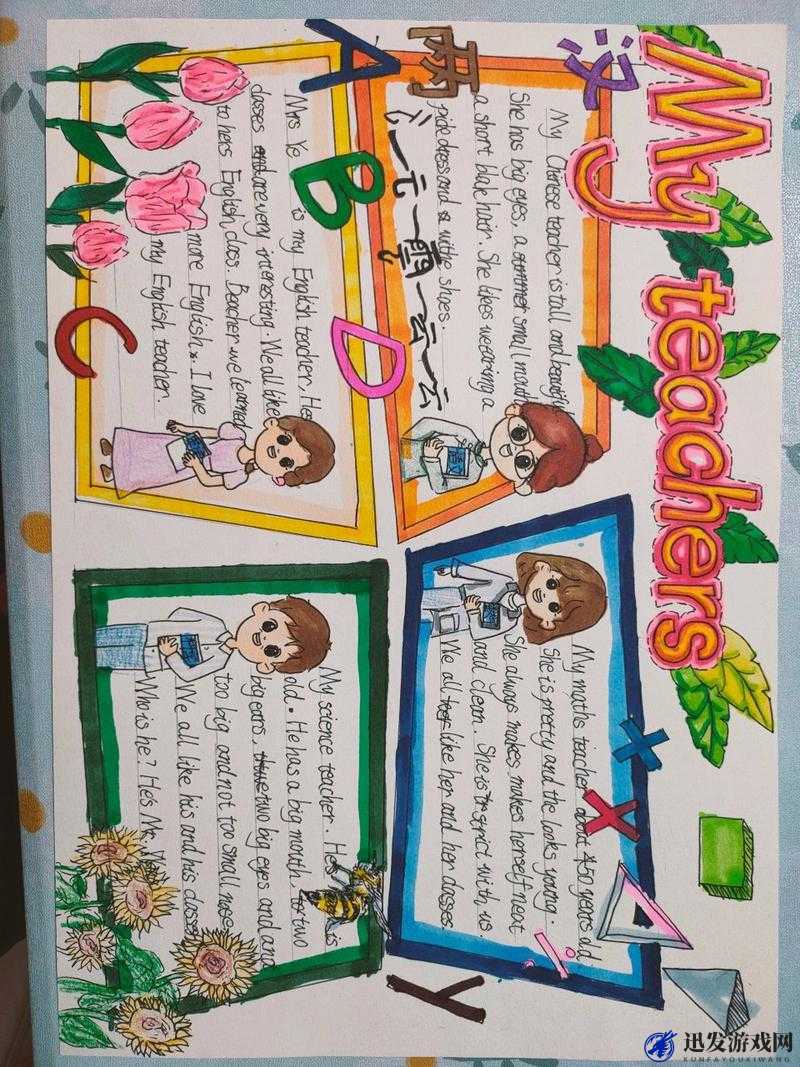 My teachers
汉
My Chinese teacher is tall and beautiful
She has big eyes, a small mouth
a short blak hair. She likes wearing a
and withe shoes.
A
B
C
D
Mrs Ye is my English teacher. Her
classes are very interesting. We all like
to hers English class. we learned
more English. I love
my English teacher.
My maths teacher about 45 years old
She is pretty and the looks young.
She always makes makes herself neat
and clean. She is strict with us
We all like her and her classes.
x
Y
÷
y
My science teacher. He is
old. He has a big mouth, two
big ears, two big eyes and and
too big and not too small nose
We all like his and his classes
Who is he? He's Mr.
迅发游戏网
XUNFAYOUXIWANG